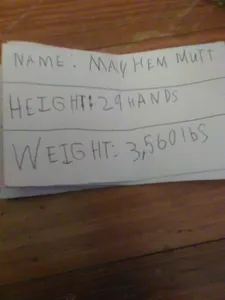 NAME: MAYHEM MUTT
HEIGHT: 24 HANDS
WEIGHT: 3,560 lbs